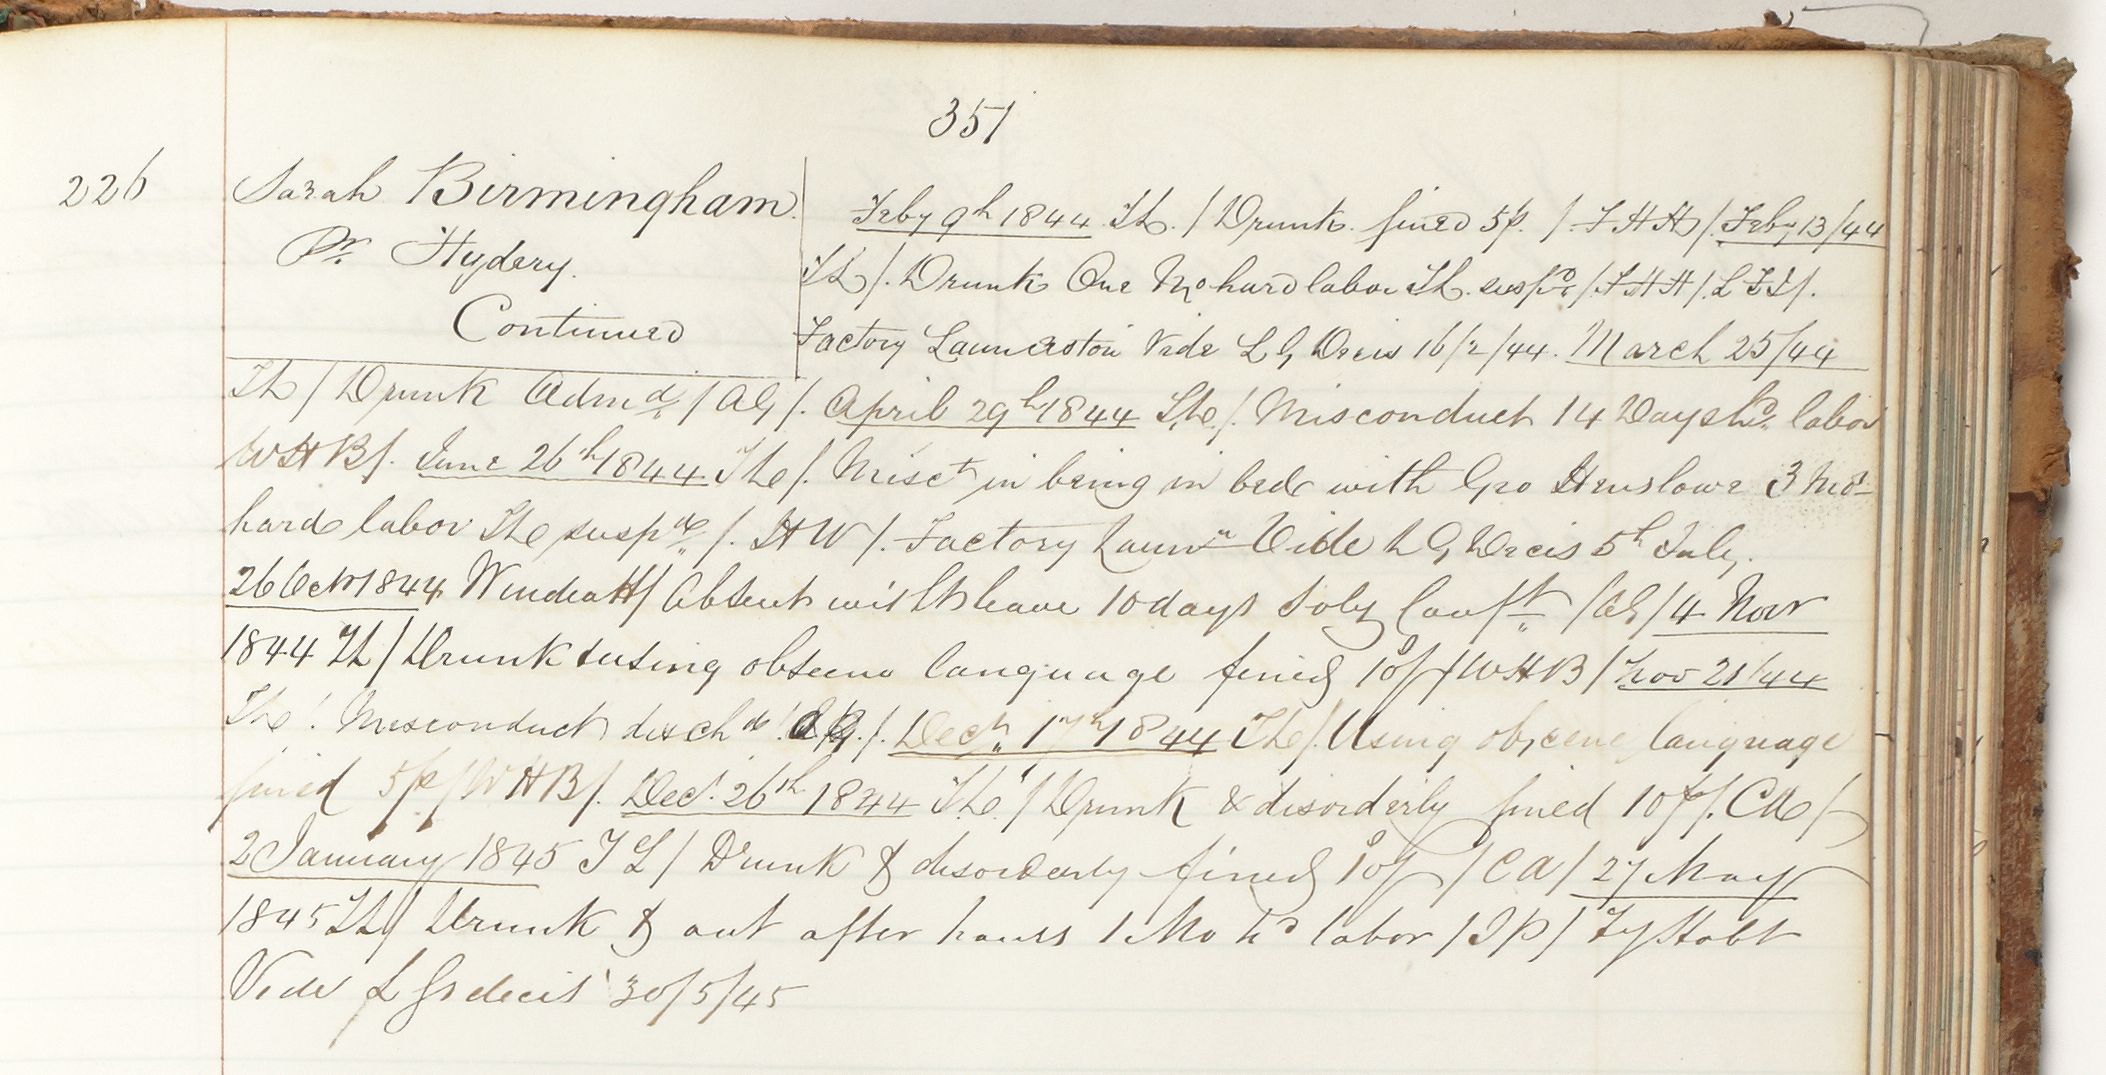 351
226
Sarah Birmingham
Pr. Hydery.
Continued
Feby 9h 1844 TL. / Drunk. fined 5/. / F H H / Feby 13/44
TL /. Drunk One Mo hard labor TL. suspd / F H H /.
Factory Launceston Vide L G Decis 16/2/44. March 25/44
TL / Drunk Admd / AG /. April 29h 1844 TL /. Misconduct 14 Days hd labor
WHB /. June 26th 1844 TL /. Misct in being in bed with Geo Henslowe 3 Mos
hard labor TL suspd /. HW /. Factory Launn Vide L G Decis 5h July.
26 Octr 1844 / Absent witht leave 10 days Soly Conft / AG / 4 Novr
1844 TL / Drunk & using obscene language fined 10/ / WHB / Nov 21/44
TL /. Misconduct dischd /. Decr 17h 1844 TL /. Using obscene language
fined 5/ / WHB /. Decr 26th 1844 TL / Drunk & disorderly fined 10/ /. CA /
2 January 1845 TL / Drunk & disorderly fined 10/ / CA / 27 May
1845 TL / Drunk & out after hours 1 Mo hd labor / JP / Fy Hobt
Vide L Gs decis 30/5/45